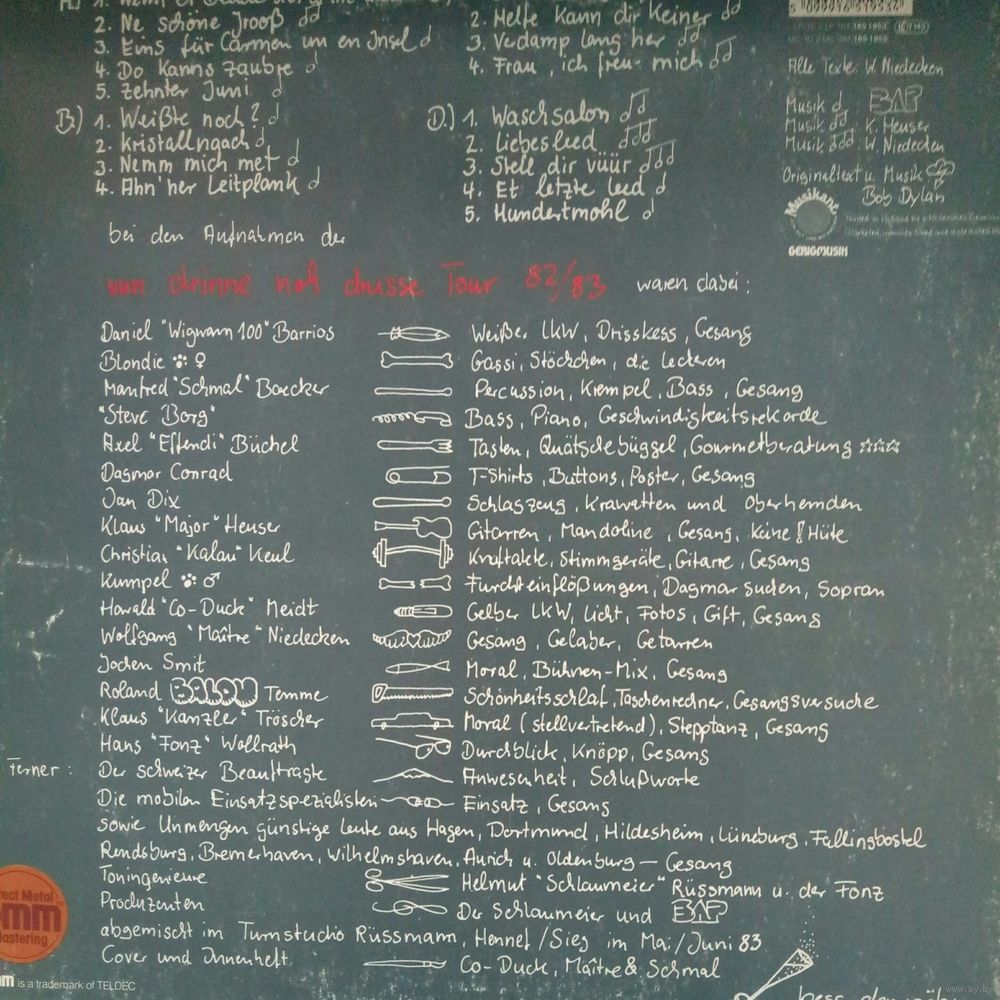 2. Ne schöne Jrooß
3. Eins für Carmen un en Insel
4. Do kanns zaubre
5. Zehnter Juni
B.) 1. Weißte noch?
2. Kristallnaach
3. Nemm mich met
4. Ahn 'ner Leitplank
2. Helfe kann dir keiner
3. Verdamp lang her
4. Frau, ich freu mich
D.) 1. Waschsalon
2. Liebesleed
3. Stell dir vüür
4. Et letzte Leed
5. Hundertmohl
Alle Texte: W. Niedecken
Musik BAP
Musik K. Heuser
Musik W. Niedecken
Originaltext u. Musik
Bob Dylan
Musikant
GERIGMUSIK
bei den Aufnahmen der
vun drinne noh drusse Tour 82/83 waren dabei:
Daniel "Wigwam 100" Barrios Weißer LKW, Drisskess, Gesang
Blondie Gassi, Stöckchen, die Leckeren
Manfred "Schmal" Boecker Percussion, Krempel, Bass, Gesang
"Steve Borg" Bass, Piano, Geschwindigkeitsrekorde
Axel "Effendi" Büchel Tasten, Quätschebüggel, Gourmetberatung ☆☆☆
Dagmar Conrad T-Shirts, Buttons, Poster, Gesang
Jan Dix Schlagzeug, Krawatten und Oberhemden
Klaus "Major" Heuser Gitarren, Mandoline, Gesang, keine! Hüte
Christian "Kalau" Keul Kraftakte, Stimmgeräte, Gitarre, Gesang
Kumpel Furchteinflößungen, Dagmar suchen, Sopran
Harald "Co-Duck" Meidt Gelber LKW, Licht, Fotos, Gift, Gesang
Wolfgang "Maître" Niedecken Gesang, Gelaber, Getarren
Jochen Smit Moral, Bühnen-Mix, Gesang
Roland BALOU Temme Schönheitsschlaf, Taschenrechner, Gesangsversuche
Klaus "Kanzler" Tröscher Moral (stellvertretend), Stepptanz, Gesang
Hans "Fonz" Wollrath Durchblick, Knöpp, Gesang
Ferner: Der schweizer Beauftragte Anwesenheit, Schlußworte
Die mobilen Einsatzspezialisten Einsatz, Gesang
sowie Unmengen günstige Leute aus Hagen, Dortmund, Hildesheim, Lüneburg, Fallingbostel
Rendsburg, Bremerhaven, Wilhelmshaven, Aurich u. Oldenburg — Gesang
Toningenieure Helmut "Schlaumeier" Rüssmann u. der Fonz
Produzenten Der Schlaumeier und BAP
abgemischt im Turnstudio Rüssmann, Hennef/Sieg im Mai/Juni 83
Cover und Innenheft Co-Duck, Maître & Schmal
rect Metal
mm
astering
is a trademark of TELDEC
www.ay.by